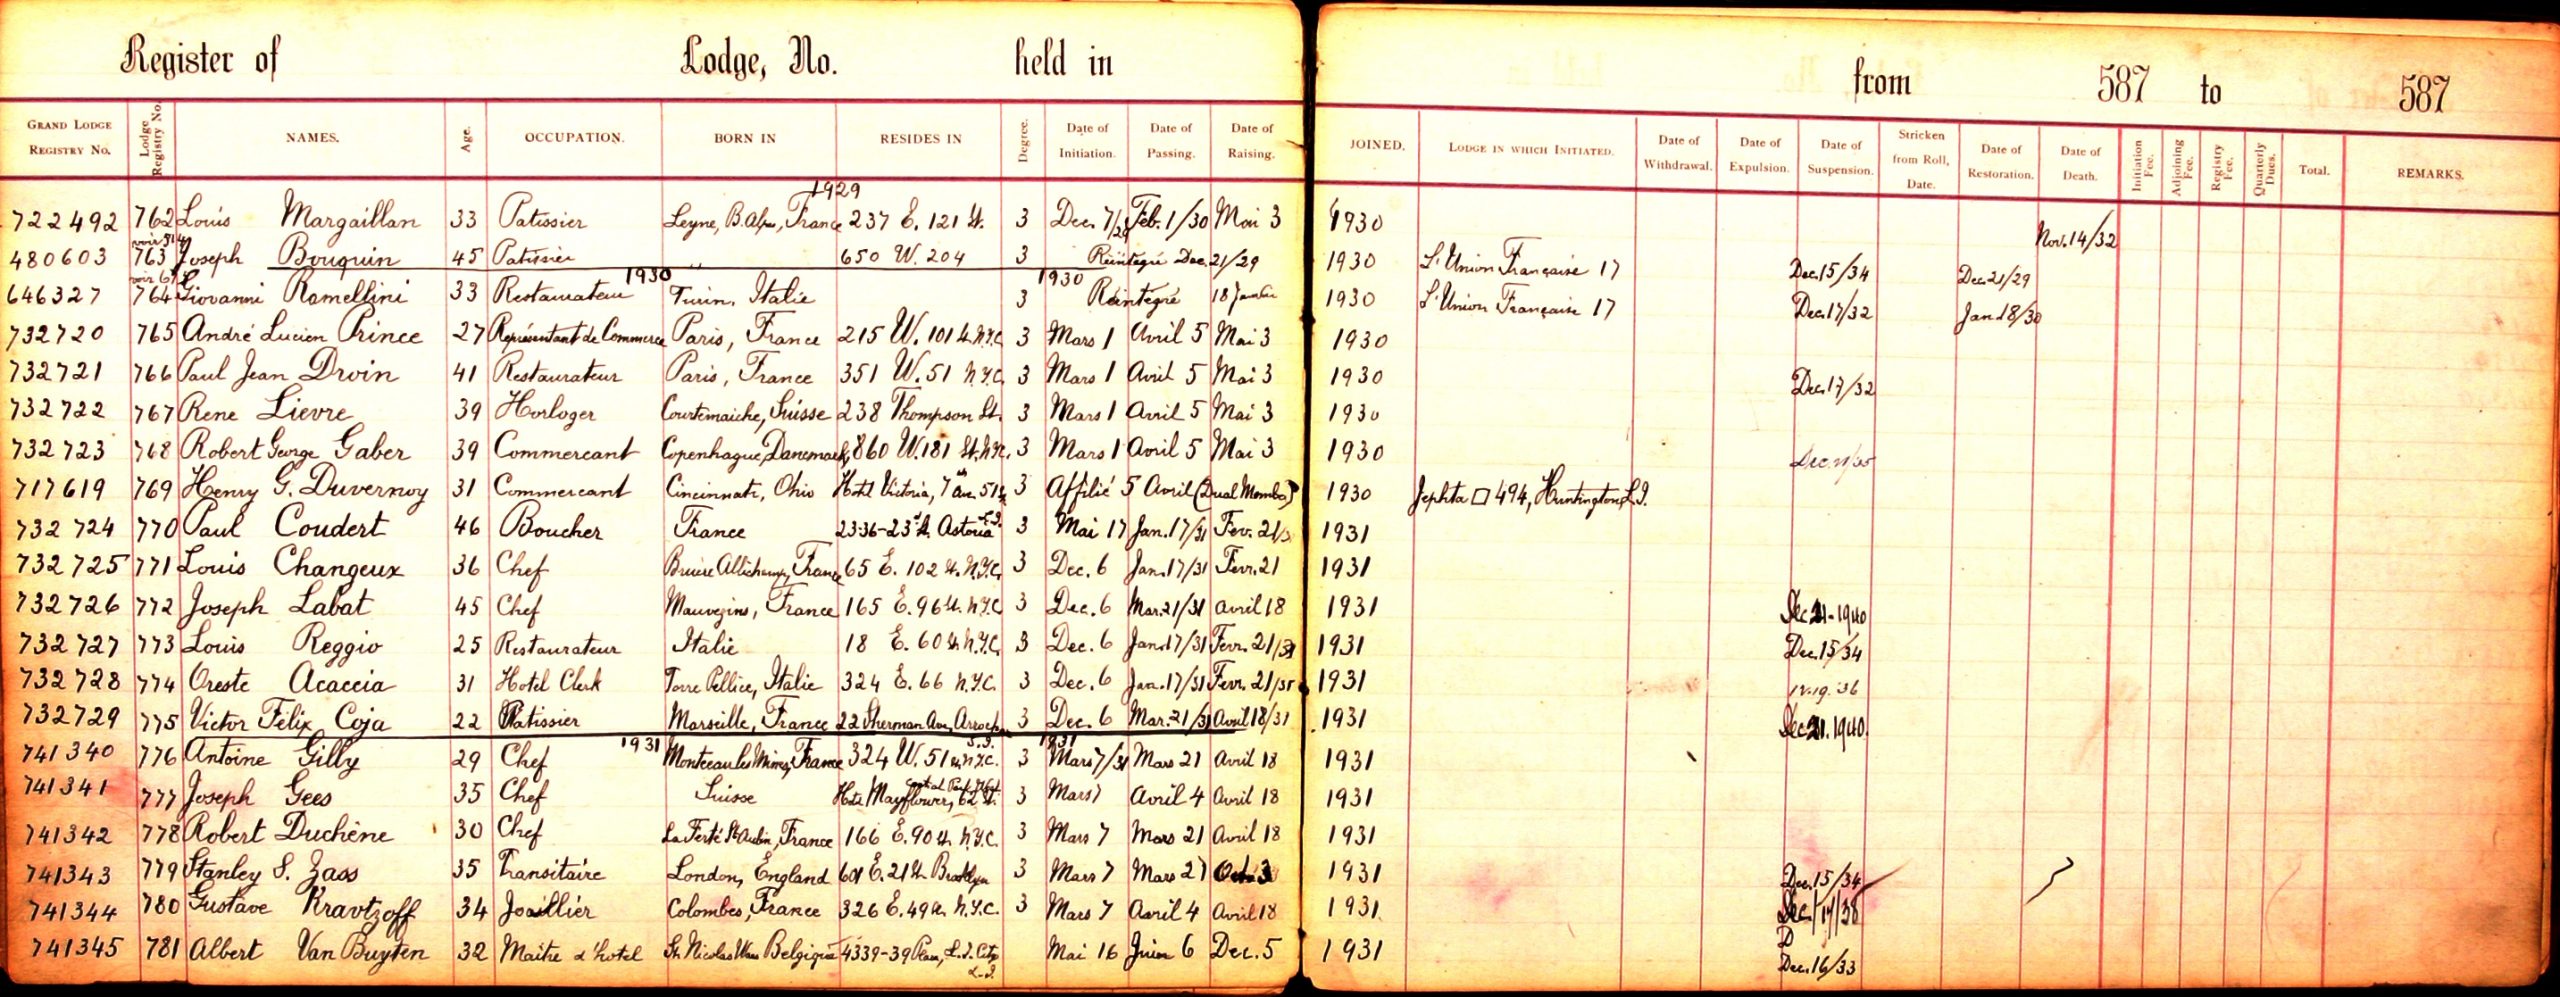 Register of Lodge, No. held in from 587 to 587
GRAND LODGE REGISTRY No. Lodge Registry No. NAMES. Age. OCCUPATION. BORN IN RESIDES IN Degree. Date of Initiation. Date of Passing. Date of Raising. JOINED. LODGE IN WHICH INITIATED. Date of Withdrawal. Date of Expulsion. Date of Suspension. Stricken from Roll, Date. Date of Restoration. Date of Death. Initiation Fee. Adjoining Fee. Registry Fee. Quarterly Dues. Total. REMARKS.
1929
722492 762 Louis Margaillan 33 Patissier Leyne, B. Alpes, France 237 E. 121 St. 3 Dec. 7/29 Feb. 1/30 Mai 3 1930 Nov. 14/32
voir 514
480603 763 Joseph Bouquin 45 Patissier " 650 W. 204 3 Réintegré Dec. 21/29 1930 L'Union Française 17 Dec. 15/34 Dec. 21/29
1930 1930
646327 764 Giovanni Ramellini 33 Restaurateur Turin, Italie 3 Réintegré 18 Janvier 1930 L'Union Française 17 Dec. 17/32 Jan. 18/30
732720 765 André Lucien Prince 27 Représentant de Commerce Paris, France 215 W. 101 St. N.Y.C. 3 Mars 1 Avril 5 Mai 3 1930
732721 766 Paul Jean Droin 41 Restaurateur Paris, France 351 W. 51 N.Y.C. 3 Mars 1 Avril 5 Mai 3 1930 Dec. 17/32
732722 767 Rene Lievre 39 Horloger Courtemaiche, Suisse 238 Thompson St. 3 Mars 1 Avril 5 Mai 3 1930
732723 768 Robert George Gaber 39 Commercant Copenhague, Danemark 860 W. 181 St. N.Y.C. 3 Mars 1 Avril 5 Mai 3 1930
717619 769 Henry G. Duvernoy 31 Commercant Cincinnati, Ohio Hotel Victoria, 7 Ave. 51 St. 3 Affilié 5 Avril (Dual Member) 1930 Jephta □ 494, Huntington, L.I.
732724 770 Paul Coudert 46 Boucher France 23-36-23 St. Astoria L.I. 3 Mai 17 Jan. 17/31 Fev. 21/31 1931
732725 771 Louis Changeux 36 Chef Bruère Allichamps, France 65 E. 102 St. N.Y.C. 3 Dec. 6 Jan. 17/31 Fevr. 21 1931
732726 772 Joseph Labat 45 Chef Mauvezins, France 165 E. 96 St. N.Y.C. 3 Dec. 6 Mar. 21/31 Avril 18 1931 Dec. 21-1940
732727 773 Louis Reggio 25 Restaurateur Italie 18 E. 60 St. N.Y.C. 3 Dec. 6 Jan. 17/31 Fevr. 21/31 1931 Dec. 15/34
732728 774 Oreste Acaccia 31 Hotel Clerk Torre Pellice, Italie 324 E. 66 N.Y.C. 3 Dec. 6 Jan. 17/31 Fevr. 21/31 1931 12.19.36
732729 775 Victor Félix Coja 22 Patissier Marseille, France 22 Sherman Ave, Arrochar S.I. 3 Dec. 6 Mar. 21/31 Avril 18/31 1931 Dec. 21. 1940.
1931 1931
741340 776 Antoine Gilly 29 Chef Montceau les Mines, France 324 W. 51 St. N.Y.C. 3 Mars 7/31 Mars 21 Avril 18 1931
741341 777 Joseph Gees 35 Chef Suisse Hotel Mayflower, Central Park West 62 St. 3 Mars 7 Avril 4 Avril 18 1931
741342 778 Robert Duchêne 30 Chef La Ferté St Aubin, France 166 E. 90 St. N.Y.C. 3 Mars 7 Mars 21 Avril 18 1931
741343 779 Stanley S. Zass 35 Transitaire London, England 601 E. 21 St. Brooklyn 3 Mars 7 Mars 21 Oct. 3 1931 Dec. 15/34
741344 780 Gustave Kravtzoff 34 Joaillier Colombes, France 326 E. 49 St. N.Y.C. 3 Mars 7 Avril 4 Avril 18 1931 Dec. 17/38
741345 781 Albert Van Buyten 32 Maitre d'hotel St. Nicolas Waes Belgique 4339-39 Place, L.I. City L.I. Mai 16 Juin 6 Dec. 5 1931 Dec. 16/33